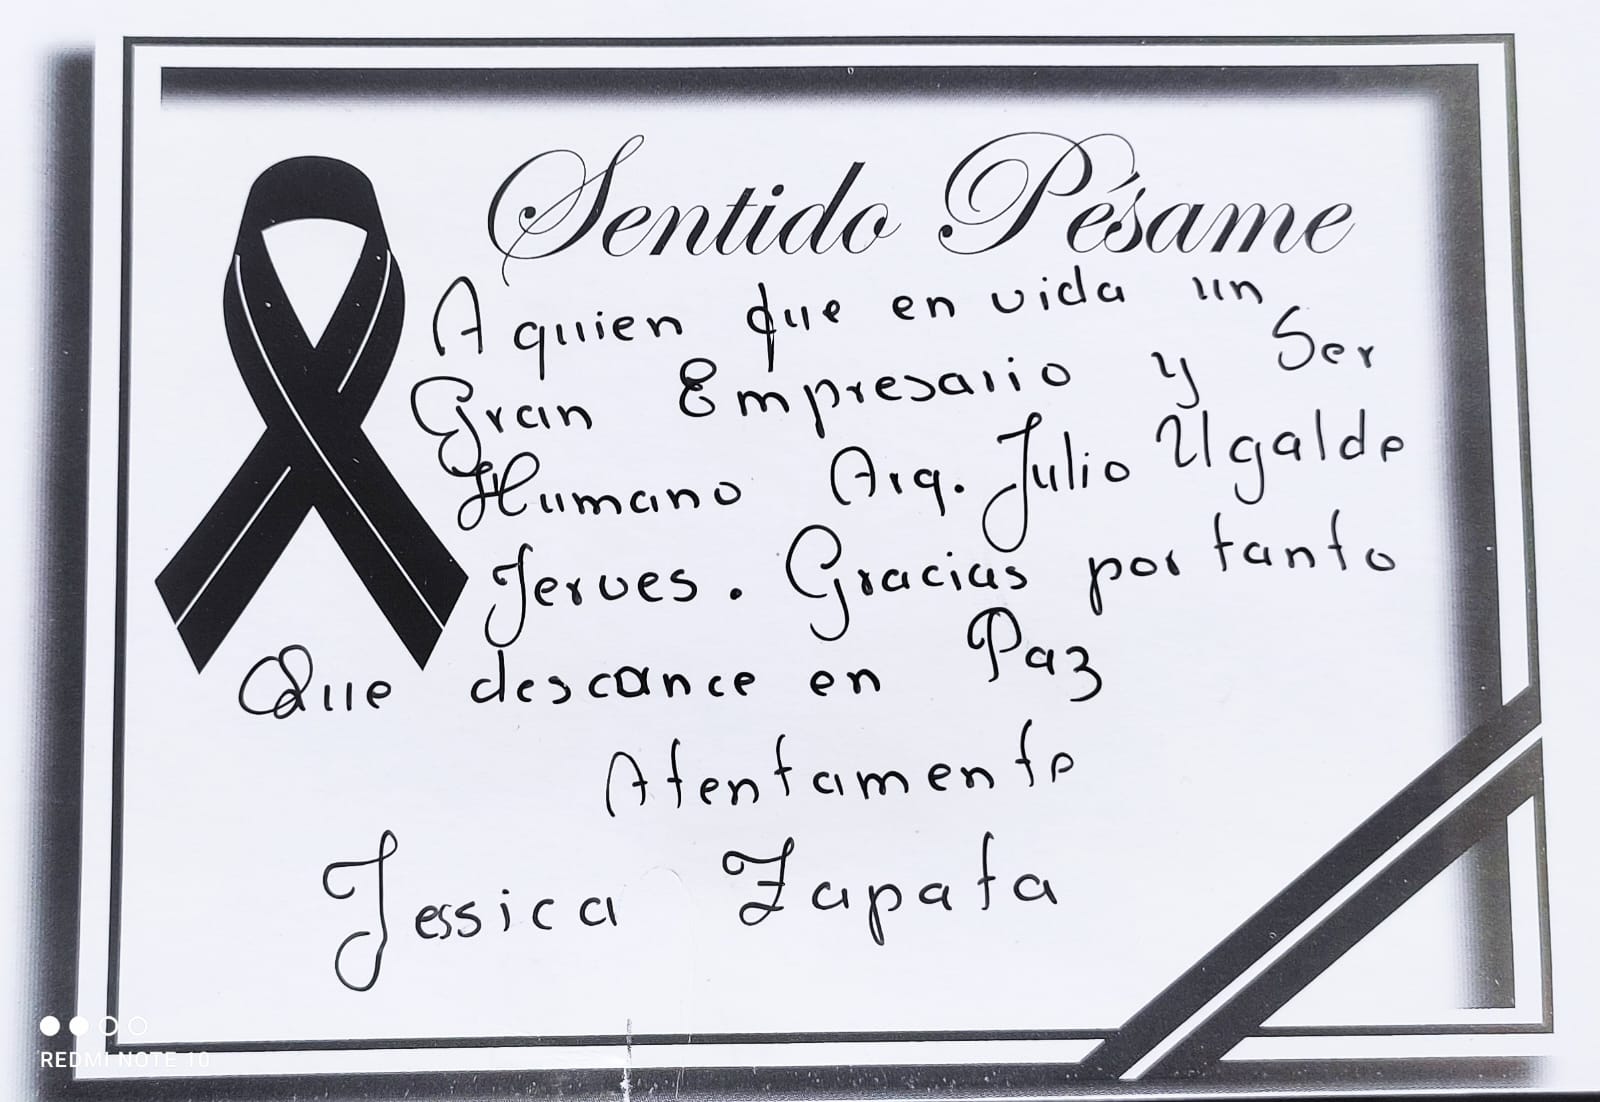 Sentido Pésame
A quien que en vida un
Gran Empresario y Ser
Humano Arq. Julio Ugalde
Jerves. Gracias por tanto
Que descance en Paz
Atentamente
Jessica Zapata
REDMI NOTE 10